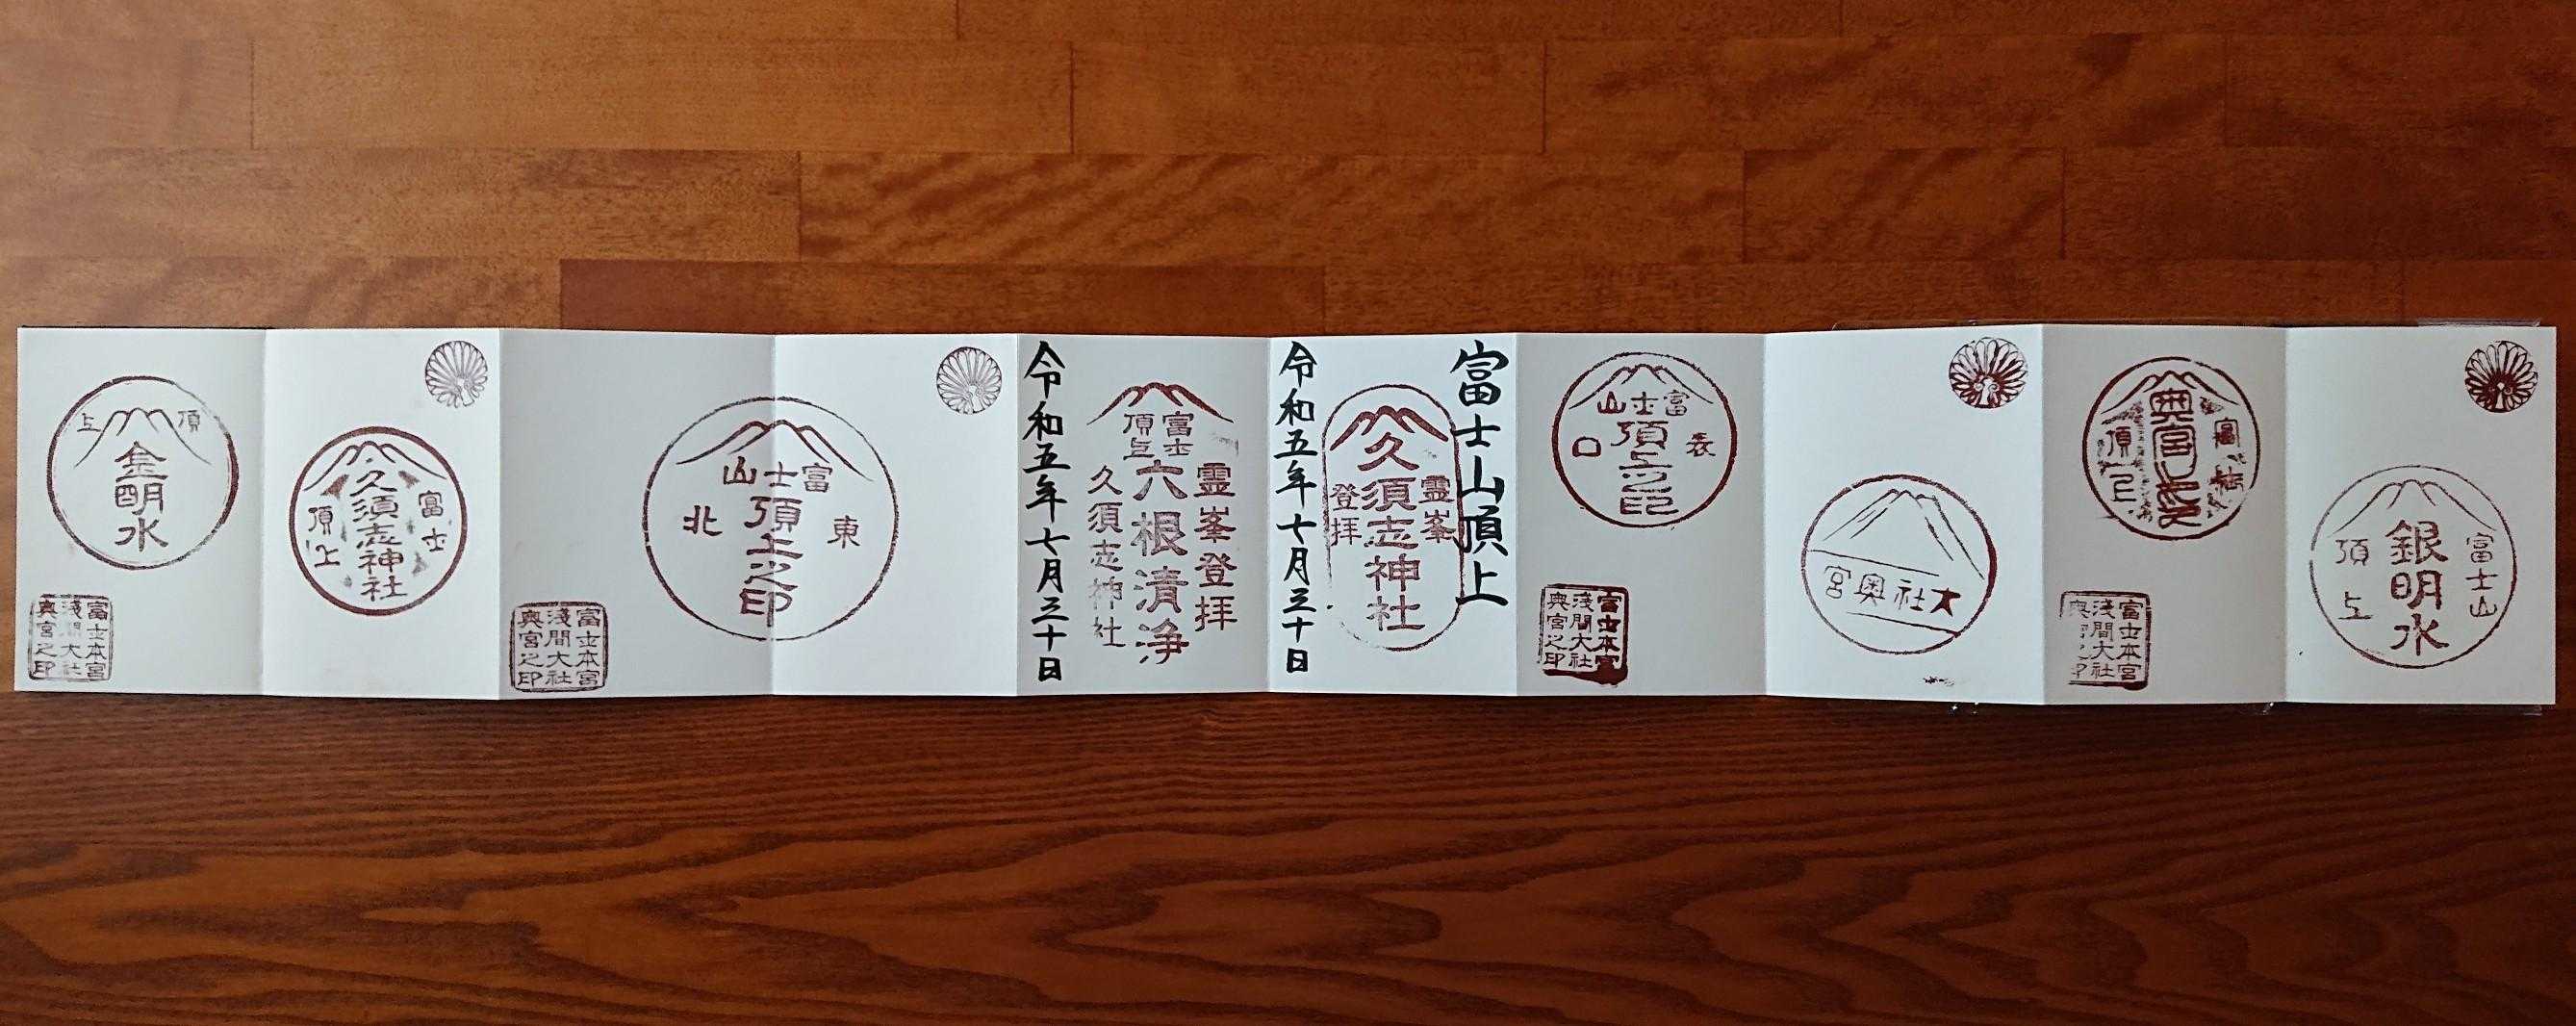 富士山
銀明水
頂上
富士
頂上
富士本宮
淺間大社
大社奥宮
富士山
表
頂上之印
口
富士本宮
淺間大社
奥宮之印
富士山頂上
霊峯
久須志神社
登拝
令和五年七月三十日
霊峯登拝
富士
頂上
六根清浄
久須志神社
令和五年七月三十日
富士山
東
頂上之印
北
富士本宮
淺間大社
奥宮之印
富士
久須志神社
頂上
頂上
金明水
富士本宮
淺間大社
奥宮之印